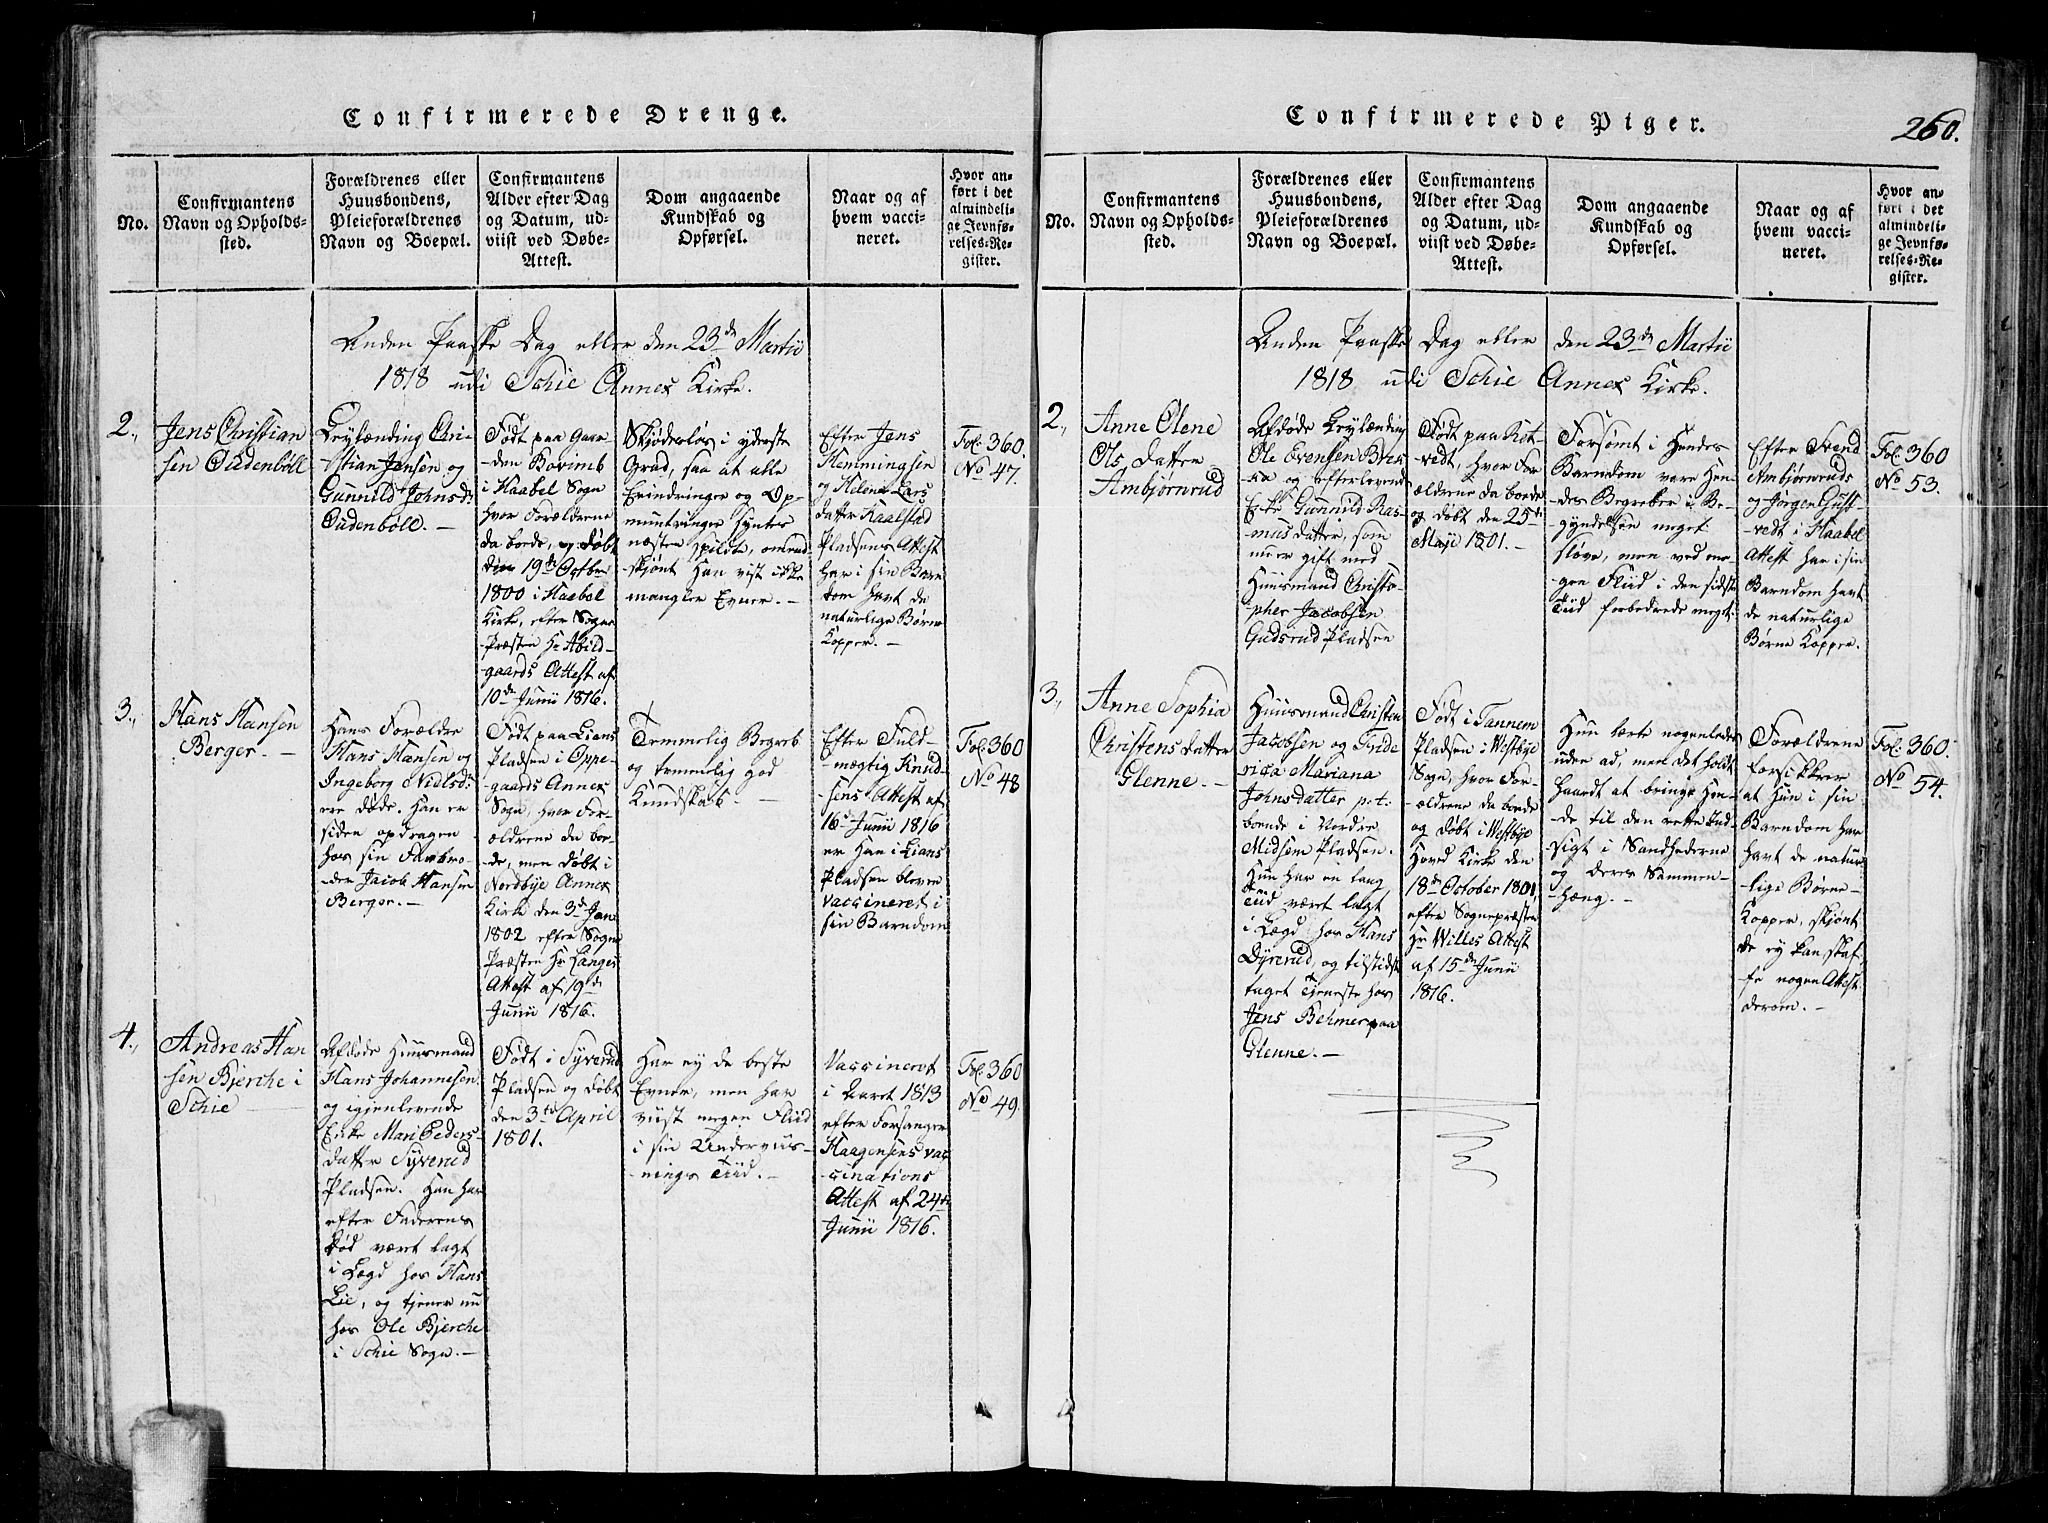 Confirmerede Drenge.
No.
Confirmantens
Navn og Opholds-
sted.
Forældrenes eller
Huusbondens,
Pleieforældrenes
Navn og Boepæl.
Confirmantens
Alder efter Dag
og Datum, ud-
viist ved Døbe-
Attest.
Dom angaaende
Kundskab og
Opførsel.
Naar og af
hvem vacci-
neret.
Hvor an-
ført i det
almindeli-
ge Jevnfø-
relses-Re-
gister.
Anden Paaske Dag eller den 23de Martii
1818 udi Schie Annex Kirke.
2.,
Jens Christian
sen Oudenböll
Leylænding Chri-
stian Jensen og
Gunnild Johnsdr
Oudenböll. –
Født paa Gaar-
den Borimb
i Haabel Sogn
hvor Forældrene
da boede, og døbt
den 19de Octbr
1800 i Haabel
Kirke, efter Sogne
Præsten Hr Abild-
gaards Attest af
10de Junii 1816.
Skjødesløs i yderste
Grad, saa at alle
Erindringer og Op-
muntringer syntes
næsten spildte, omend-
skjønt han vist ikke
mangler Evner. –
Efter Jens
Hemmingsen
og Helena Lars
datter Kaalstad
Pladsens Attest
har i sin Barn
dom havt de
naturlige Børne
Kopper. –
Fol: 360.
No 47.
3.,
Hans Hansen
Berger. –
Hans Forældre
Hans Hansen og
Ingeborg Nielsdr
ere døde. Han er
siden opdragen
hos sin Farbro-
der Jacob Hansen
Berger. –
Født paa Lians
Pladsen i Oppe-
gaards Annex
Sogn, hvor For-
ældrene da boe-
de, men døbt i
Nordbye Annex
Kirke den 3de Jan
1802 efter Sogne
Præsten Hr Langes
Attest af 19de
Junii 1816.
Temmelig Begreb
og temmelig god
Kundskab. –
Efter Fuld-
mægtig Knud-
sens Attest af
16de Junii 1816
er Han i Lians
Pladsen bleven
vaccineret i
sin Barndom
Fol: 360
No 48
4.,
Andreas Han
sen Bjerche i
Schie
Afdøde Huusmand
Hans Johannesen
og igjenlevende
Enke Mari Peders-
datter Syverud
Pladsen. Han har
efter Faderens
Død været lagt
i Lægd hos Hans
Lie, og tjener nu
hos Ole Bjerche
i Schie Sogn. –
Født i Syverud
Pladsen og døbt
den 3de April
1801.
Har ey de beste
Evner, men har
viist megen Fliid
i sin Underviis-
nings Tiid. –
Vaccineret
i Aaret 1813
efter Forsanger
Haagensens vac
cinations
Attest af 24de
Junii 1816.
Fol: 360
No 49.
Confirmerede Piger.
260.
No.
Confirmantens
Navn og Opholds-
sted.
Forældrenes eller
Huusbondens,
Pleieforældrenes
Navn og Boepæl.
Confirmantens
Alder efter Dag
og Datum, ud-
viist ved Døbe-
Attest.
Dom angaaende
Kundskab og
Opførsel.
Naar og af
hvem vacci-
neret.
Hvor an-
ført i det
almindeli-
ge Jevnfø-
relses-Re-
gister.
Anden Paaske Dag eller den 23de Martii
1818 udi Schie Annex Kirke.
2.,
Anne Olene
Ols Datter
Ambjørnrud
Afdøde Leylænding
Ole Evensen
og efterlevende
Enke Gunnild Ras-
musdatter, som
nu er gift med
Huusmand Christo-
pher Jacobsen
Gudsrud Pladsen
Født paa Ret-
vedt, hvor For-
ældrene da boede
og døbt den 25de
Maji 1801. –
Forsømt i Hendes
Barndom vare Hen-
des Begreber i Be-
gyndelsen meget
sløve, men ved me-
gen Fliid i den sidste
Tiid forbedrede meget.
Efter Svend
Ambjørnruds
og Jørgen Gust-
vedt i Haabel
Attest har i sin
Barndom havt
de naturlige
Børne Kopper.
Fol: 360
No 53.
3.,
Anne Sophia
Christens datter
Glenne. –
Huusmand Christen
Jacobsen og Fride
rica Mariana
Johnsdatter p.t.
boende i Nordre
Midsem Pladsen.
Hun har en lang
Tiid været lagt
i Lægd hos Hans
Dyrerud, og tilsidst
taget Tjeneste hos
Jens Behmer paa
Glenne. –
Født i Tannem
Pladsen i Westbye
Sogn, hvor For-
ældrene da boede
og døbt i Westbye
Hoved Kirke den
18de October 1801,
efter Sognepræsten
Hr Willes Attest
af 15de Junii
1816.
Hun lærte nogenledes
uden ad, men det holdt
haardt at bringe Hen-
de til den rette Ind-
sigt i Sandhederne
og deres Sammen-
hæng. –
Forældrene
forsikkrer
at Hun i sin
Barndom har
havt de natur-
lige Børne-
Kopper, skjønt
de ey kan skaf-
fe nogen Attest
derom. –
Fol: 360.
No 54.